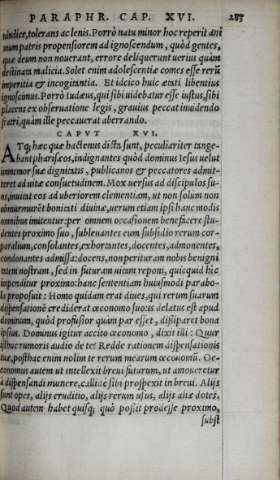 PARAPHR. CAP. XVI. 287
uindice, tolerans ac lenis. Porrò natu minor hoc reperit ani
mum patris propensiorem ad ignoscendum, quòd gentes,
quæ deum non nouerant, errore deliquerunt uerius quàm
destinata malicia. Solet enim adolescentiæ comes esse rerū
imperitia & incogitantia. Et idcirco huic ætati libentius
ignoscimus. Porrò Iudæus, qui sibi uidebatur esse iustus, sibi
placens ex obseruatione legis, grauius peccat inuidendo
fratri, quàm ille peccauerat aberrando.
CAPVT XVI.
ATq; hæc quæ hactenus dicta sunt, peculiariter tange-
bant pharisæos, indignantes quòd dominus Iesus uelut
immemor suæ dignitatis, publicanos & peccatores admit-
teret ad uitæ consuetudinem. Mox uersus ad discipulos su-
os, inuitat eos ad uberiorem clementiam, ut non solum non
obmurmurēt bonitati diuinæ, uerum etiam ipsi hanc modis
omnibus imitentur: per omnem occasionem benefacere stu-
dentes proximo suo, subleuantes eum subsidio rerum cor-
poralium, consolantes, exhortantes, docentes, admonentes,
condonantes admissa: docens, non perituram nobis benigni
tatem nostram, sed in futuram uitam reponi, quicquid hic
impenditur proximo: hanc sententiam huiusmodi parabo-
la proposuit: Homo quidam erat diues, qui rerum suarum
dispensationē crediderat œconomo suo: is delatus est apud
dominum, quòd profusior quàm par esset, dissiparet bona
ipsius. Dominus igitur accito œconomo, dixit illi: Quur
isthuc rumoris audio de te? Redde rationem dispensationis
tuæ, posthac enim nolim te rerum mearum œconomū. Oe-
conomus autem ut intellexit breui futurum, ut amoueretur
à dispensandi munere, callide sibi prospexit in breui. Alijs
sunt opes, alijs eruditio, alijs rerum usus, alijs aliæ dotes.
Quod autem habet quisq; quò possit prodesse proximo,
subst